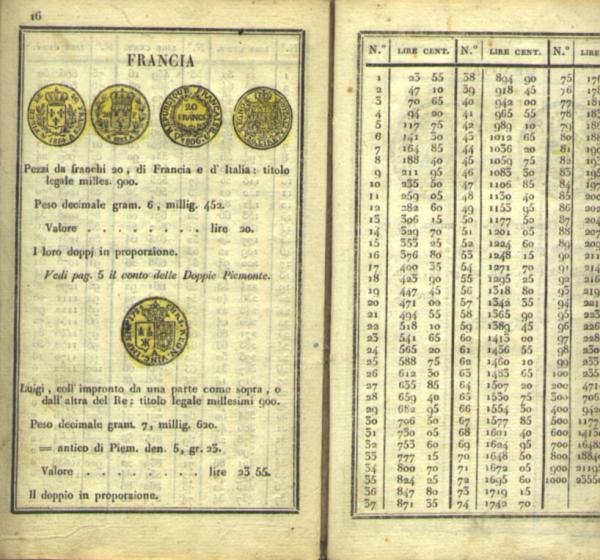 16
FRANCIA
20
FRANCS
1806
Pezzi da franchi 20, di Francia e d' Italia: titolo
legale milles. 900.
Peso decimale gram. 6, millig. 452.
Valore . . . . . . . . lire 20.
I loro doppj in proporzione.
Vedi pag. 5 il conto delle Doppie Piemonte.
Luigi, coll' impronto da una parte come sopra, e
dall' altra del Re: titolo legale millesimi 900.
Peso decimale gram. 7, millig. 620.
= antico di Piem. den. 5, gr. 23.
Valore . . . . . . . . lire 23 55.
Il doppio in proporzione.
N.° LIRE CENT. N.° LIRE CENT. N.° LIRE
1 23 55 38 894 90 75 176
2 47 10 39 918 45 76 178
3 70 65 40 942 00 77 181
4 94 20 41 965 55 78 183
5 117 75 42 989 10 79 186
6 141 30 43 1012 65 80 188
7 164 85 44 1036 20 81 190
8 188 40 45 1059 75 82 193
9 211 95 46 1083 30 83 195
10 235 50 47 1106 85 84 197
11 259 05 48 1130 40 85 200
12 282 60 49 1153 95 86 202
13 306 15 50 1177 50 87 204
14 329 70 51 1201 05 88 207
15 353 25 52 1224 60 89 209
16 376 80 53 1248 15 90 211
17 400 35 54 1271 70 91 214
18 423 90 55 1295 25 92 216
19 447 45 56 1318 80 93 219
20 471 00 57 1342 35 94 221
21 494 55 58 1365 90 95 223
22 518 10 59 1389 45 96 226
23 541 65 60 1413 00 97 228
24 565 20 61 1436 55 98 230
25 588 75 62 1460 10 99 233
26 612 30 63 1483 65 100 235
27 635 85 64 1507 20 200 471
28 659 40 65 1530 75 300 706
29 682 95 66 1554 30 400 942
30 706 50 67 1577 85 500 1177
31 730 05 68 1601 40 600 1413
32 753 60 69 1624 95 700 1648
33 777 15 70 1648 50 800 1884
34 800 70 71 1672 05 900 2119
35 824 25 72 1695 60 1000 2355
36 847 80 73 1719 15
37 871 35 74 1742 70